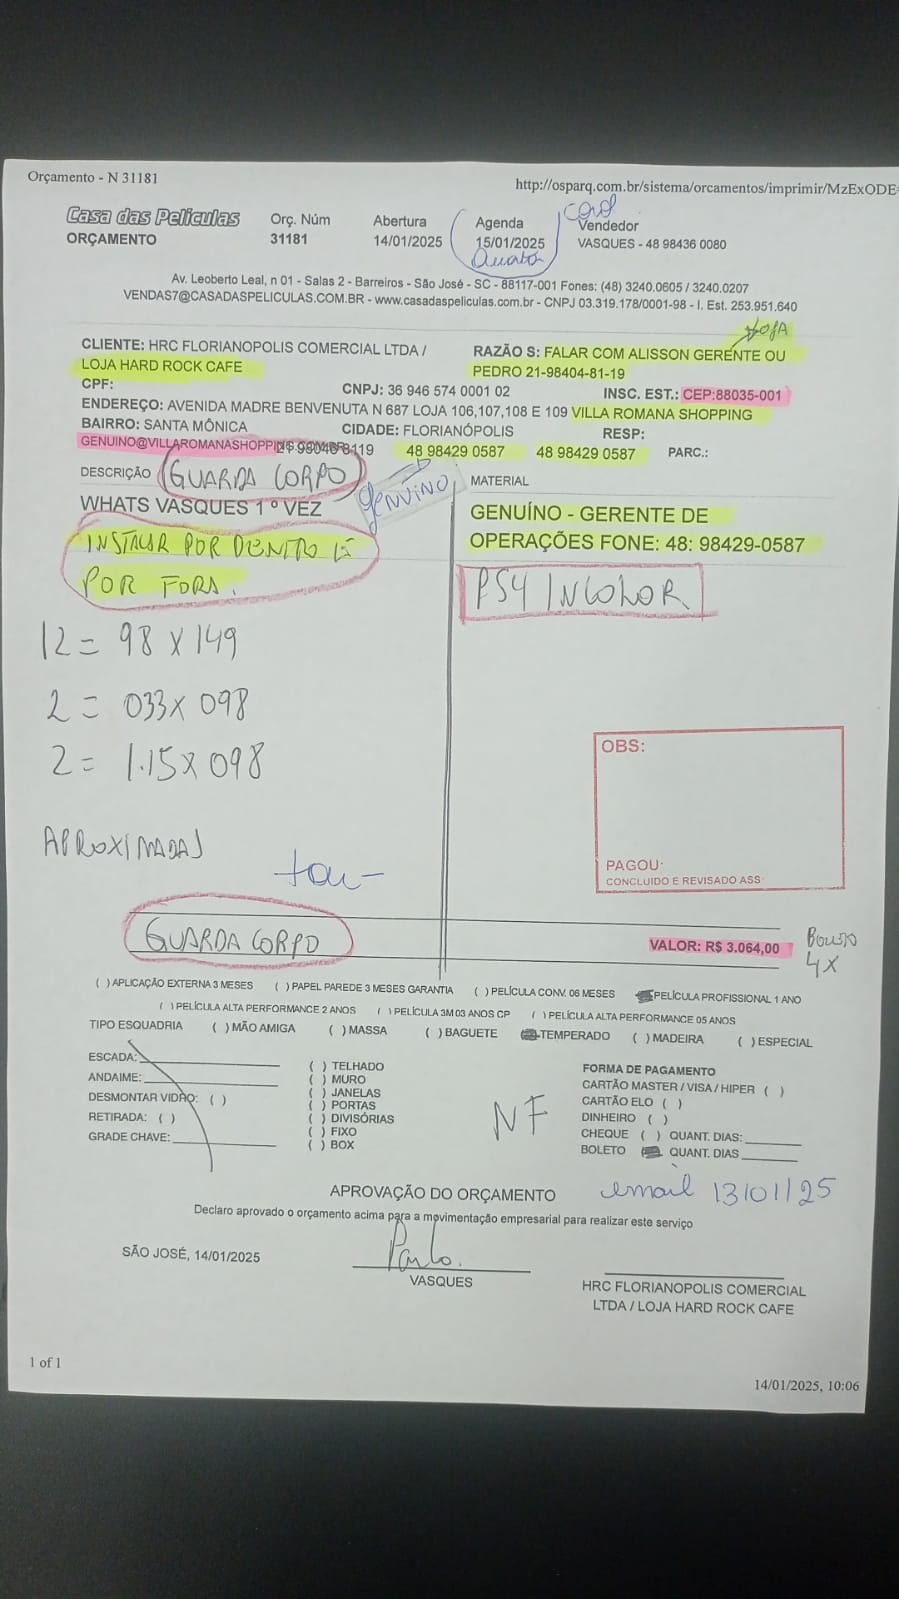 Orçamento - N 31181
http://osparq.com.br/sistema/orcamentos/imprimir/MzExODE=
Casa das Películas
ORÇAMENTO
Orç. Núm
31181
Abertura
14/01/2025
Agenda
15/01/2025
Quarta
Vendedor
VASQUES - 48 98436 0080
Av. Leoberto Leal, n 01 - Salas 2 - Barreiros - São José - SC - 88117-001 Fones: (48) 3240.0605 / 3240.0207
VENDAS7@CASADASPELICULAS.COM.BR - www.casadaspeliculas.com.br - CNPJ 03.319.178/0001-98 - I. Est. 253.951.640
LOJA
CLIENTE: HRC FLORIANOPOLIS COMERCIAL LTDA /
LOJA HARD ROCK CAFE
RAZÃO S: FALAR COM ALISSON GERENTE OU
PEDRO 21-98404-81-19
CPF:
CNPJ: 36 946 574 0001 02
INSC. EST.: CEP:88035-001
ENDEREÇO: AVENIDA MADRE BENVENUTA N 687 LOJA 106,107,108 E 109 VILLA ROMANA SHOPPING
BAIRRO: SANTA MÔNICA
CIDADE: FLORIANÓPOLIS
RESP:
48 98429 0587
48 98429 0587
PARC.:
DESCRIÇÃO
GUARDA CORPO
GENUÍNO
MATERIAL
WHATS VASQUES 1 º VEZ
GENUÍNO - GERENTE DE
OPERAÇÕES FONE: 48: 98429-0587
INSTALAR POR DENTRO E
POR FORA.
PS4 INCOLOR
12 = 98 X 149
2 = 033 X 098
2 = 1.15 X 098
OBS:
PAGOU:
CONCLUIDO E REVISADO ASS
APROXIMADAS
GUARDA CORPO
VALOR: R$ 3.064,00
BOLETO
4X
( ) APLICAÇÃO EXTERNA 3 MESES ( ) PAPEL PAREDE 3 MESES GARANTIA ( ) PELÍCULA CONV. 06 MESES PELÍCULA PROFISSIONAL 1 ANO
( ) PELÍCULA ALTA PERFORMANCE 2 ANOS ( ) PELÍCULA 3M 03 ANOS CP ( ) PELÍCULA ALTA PERFORMANCE 05 ANOS
TIPO ESQUADRIA ( ) MÃO AMIGA ( ) MASSA ( ) BAGUETE TEMPERADO ( ) MADEIRA ( ) ESPECIAL
ESCADA:
ANDAIME:
DESMONTAR VIDRO: ( )
RETIRADA: ( )
GRADE CHAVE:
( ) TELHADO
( ) MURO
( ) JANELAS
( ) PORTAS
( ) DIVISÓRIAS
( ) FIXO
( ) BOX
NF
FORMA DE PAGAMENTO
CARTÃO MASTER / VISA / HIPER ( )
CARTÃO ELO ( )
DINHEIRO ( )
CHEQUE ( ) QUANT. DIAS:
BOLETO QUANT. DIAS
email 13/01/25
APROVAÇÃO DO ORÇAMENTO
Declaro aprovado o orçamento acima para a movimentação empresarial para realizar este serviço
SÃO JOSÉ, 14/01/2025
VASQUES
HRC FLORIANOPOLIS COMERCIAL
LTDA / LOJA HARD ROCK CAFE
1 of 1
14/01/2025, 10:06